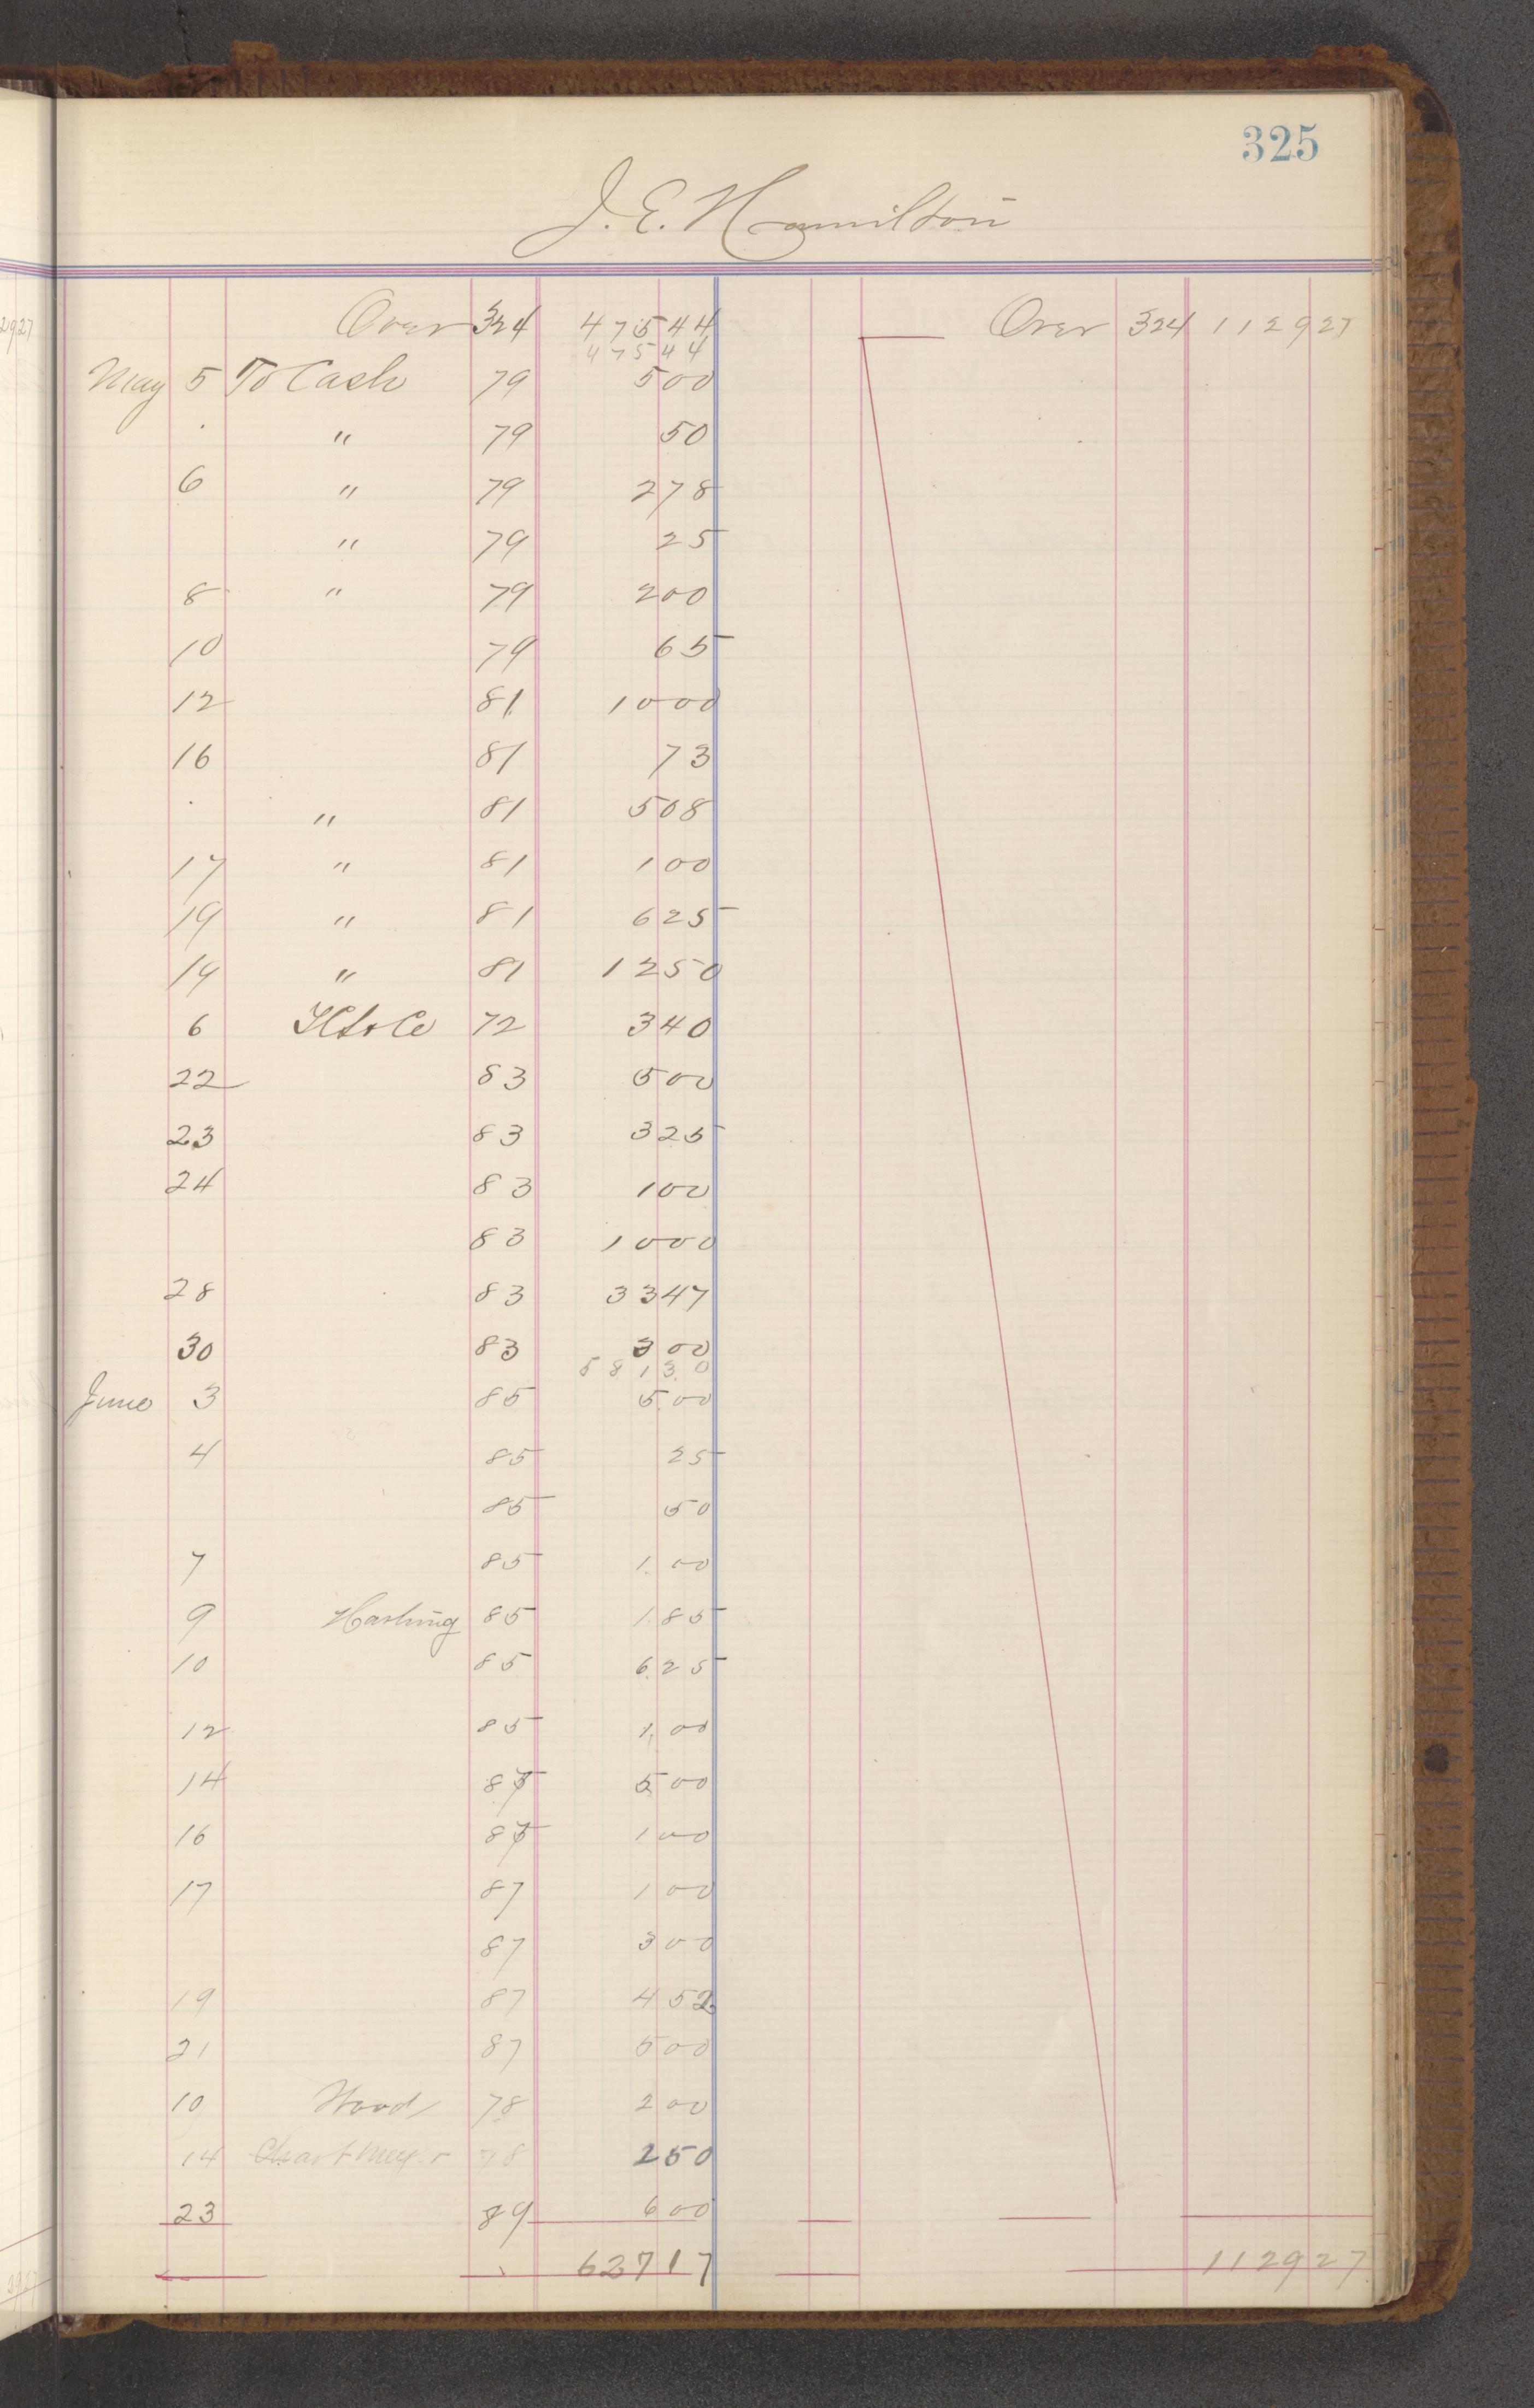 325
J. E. Hamilton
Over 324 475 44 Over 324 1129 27
475 44
May 5 To Cash 79 5 00
. " 79 50
6 " 79 2 78
" 79 25
8 " 79 2 00
10 79 65
12 81 10 00
16 81 73
. " 81 5 08
17 " 81 1 00
19 " 81 6 25
19 " 81 12 50
6 72 3 40
22 83 5 00
23 83 3 25
24 83 1 00
83 10 00
28 83 33 47
30 83 3 00
581 30
June 3 85 5 00
4 85 25
85 50
7 85 1 00
9 85 1 85
10 85 6 25
12 85 1 00
14 87 5 00
16 87 1 00
17 87 1 00
87 3 00
19 87 4 52
21 87 5 00
10 Wood 78 2 00
14 78 2 50
23 89 6 00
627 17 1129 27